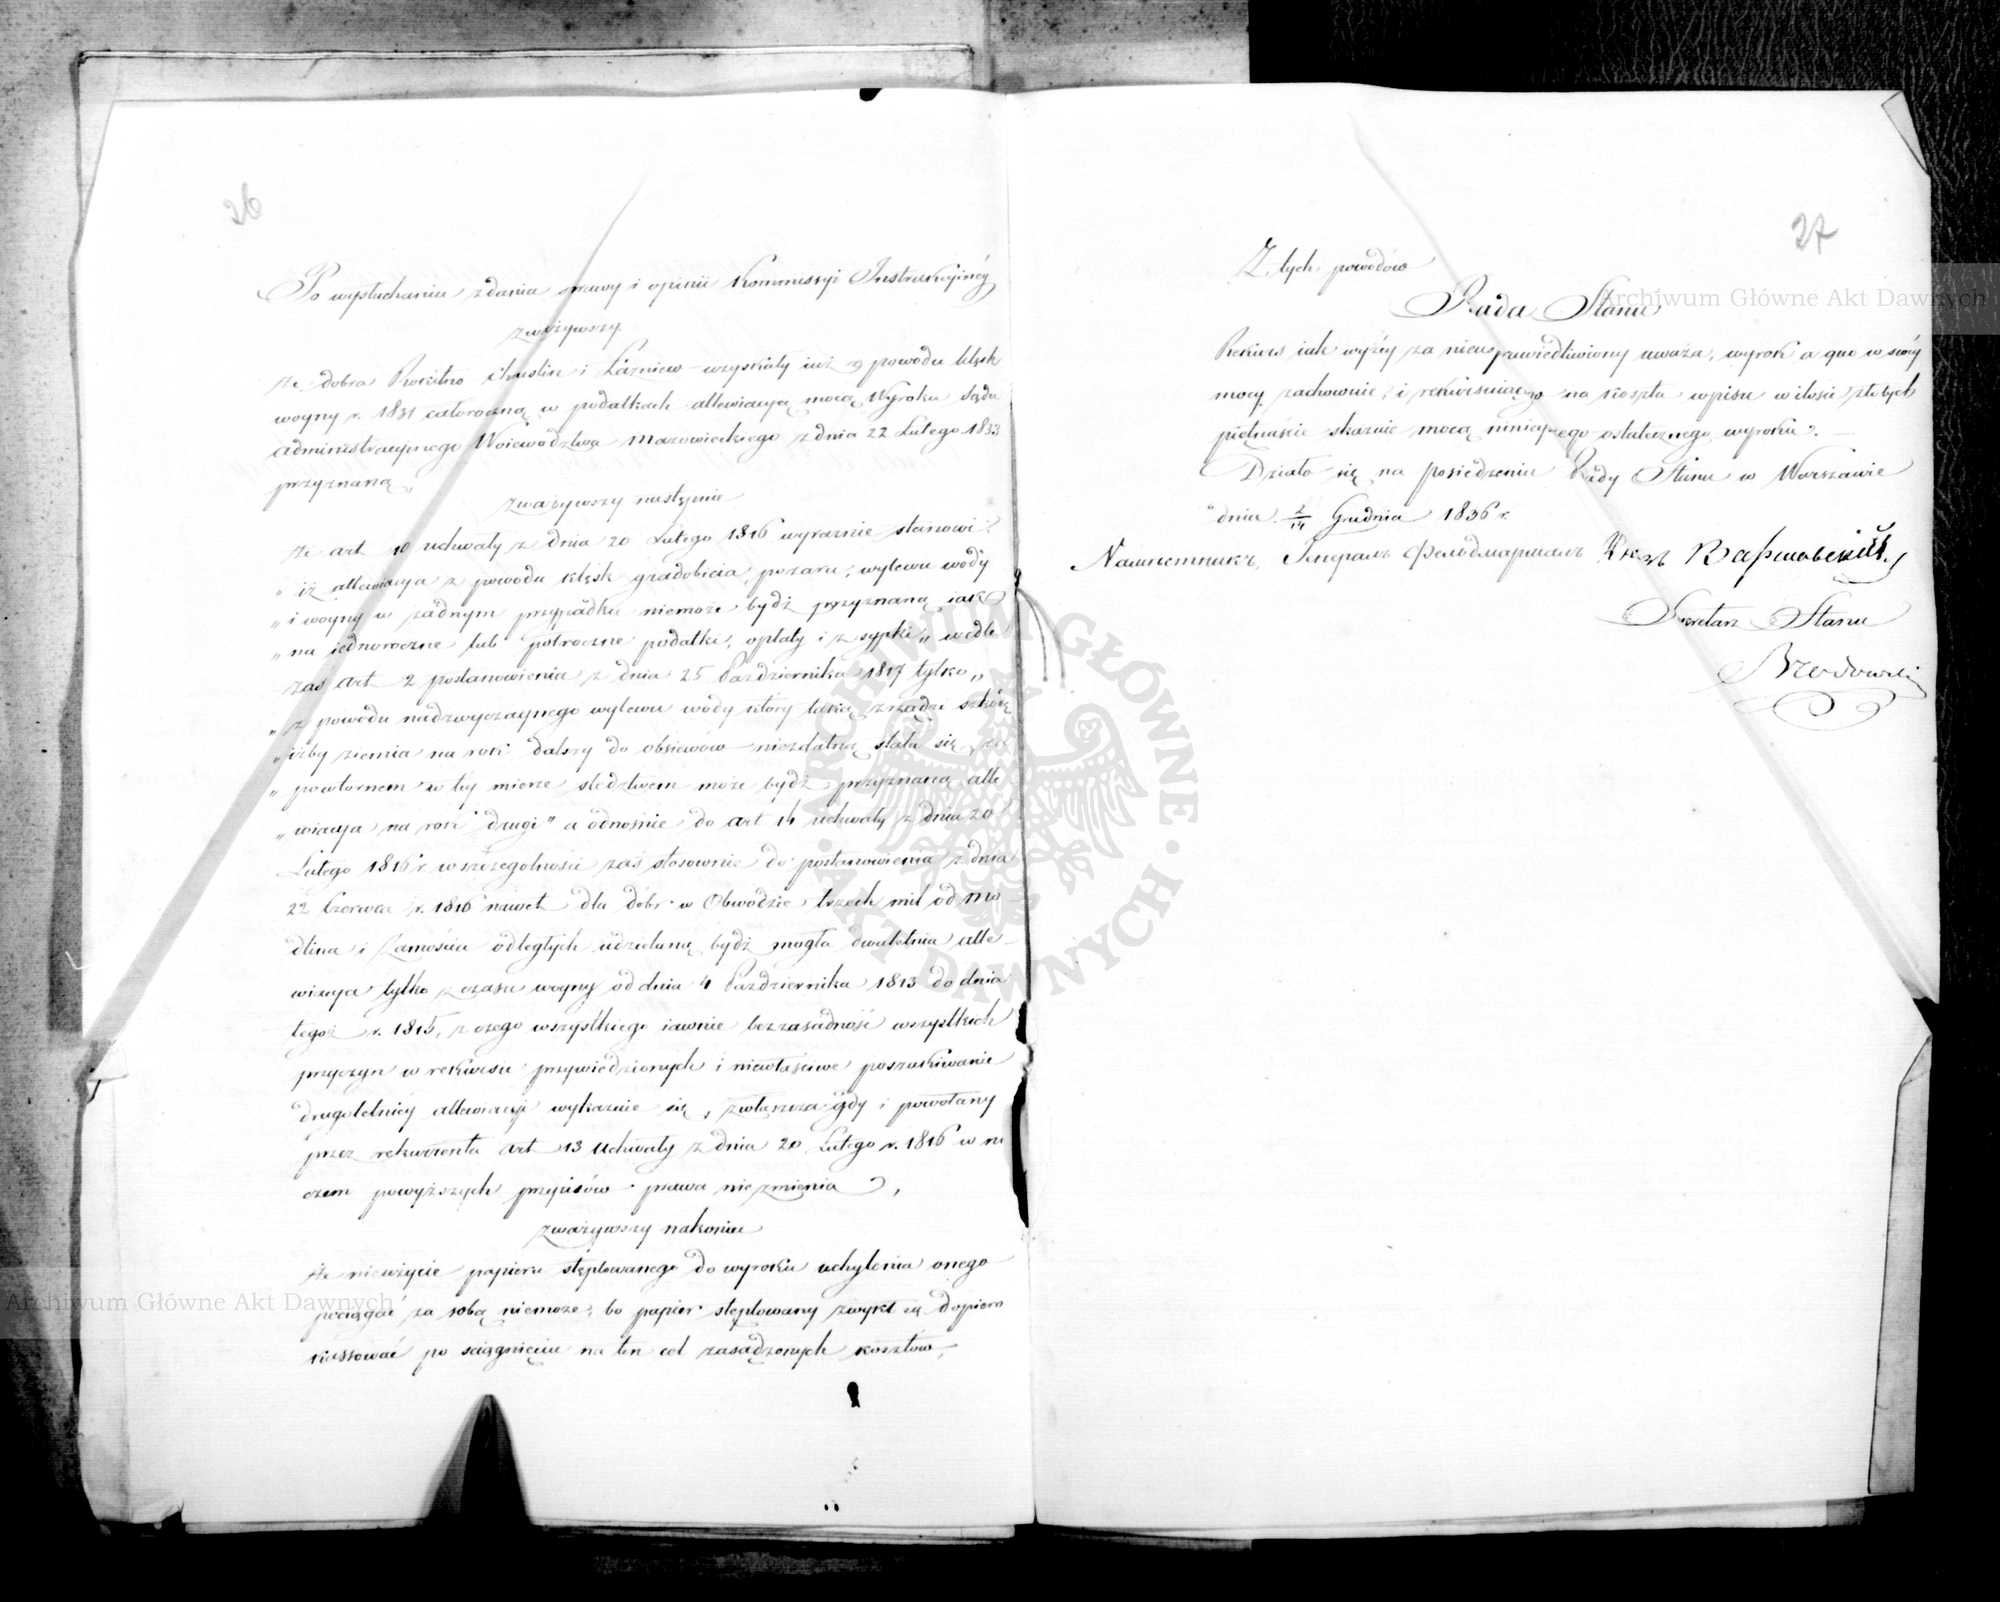 26
Po wysłuchaniu zdania sprawy i opinii Kommissyi Instrukcyinéy
zważywszy
że dobra Rokitno Chuslin i Łaźniew wzyskały iuż z powodu klęsk
woyny r. 1831 całoroczną w podatkach allewiacyą mocą Wyroku Sądu
administracyinego Woiewodztwa Mazowieckiego z dnia 22 Lutego 1833
przyznaną„
Zważywszy następnie
że art 10 uchwały z dnia 20 Lutego 1816 wyraznie stanowi:
„iż allewiacya z powodu klęsk gradobicia, pożaru, wylewu wody
„i woyny w żadnym przypadku niemoże bydź przyznaną iak
„na iednoroczne lub półroczne podatki, opłaty i zsypki„ wedle
zaś art 2 postanowienia z dnia 25 Października 1817 tylko„
„z powodu nadzwyczaynego wylewu wody który taką zrządzi szkodę
„iżby ziemia na rok dalszy do obsiewów niezdatną stała się, za
„powtornem w tey mierze śledztwem może bydź przyznaną alle
„wiacya na rok drugi" a odnośnie do art 14 uchwały z dnia 20
Lutego 1816 r wszczegolności zaś stosownie do postanowienia z dnia
22 Czerwca r. 1816 nawet dla dóbr w Obwodzie trzech mil od Mo
dlina i Zamościa odległych udzieloną bydź mogła dwuletnia alle-
wiacya tylko z czasu woyny od dnia 4 Października 1813 do dnia
tegoż r. 1815, z czego wszystkiego iawnie bezzasadność wszystkich
przyczyn w rekursie przywiedzionych i niewłaściwe poszukiwanie
drugoletniéy allewiacyi wykazuie się, zwłaszcza gdy i powołany
przez rekurrenta art 13 Uchwały z dnia 20 Lutego r. 1816 w ni
czem powyższych przepisów prawa niezmienia,
zważywszy nakoniec
że nieużycie papieru stęplowanego do wyroku uchylenia onego
pociągać za sobą niemoże, bo papier stęplowany zwykł się dopiero
kassować po sciągnięciu na ten cel zasądzonych kosztów,
27
Z tych powodów
Rada Stanu
Rekurs iak wyżéy za nieusprawiedliwiony uważa, wyrok a quo w swéy
mocy zachowuie, i rekursuiącego na koszta wpisu w ilości złotych
piętnaście skazuie mocą ninieyszego ostatecznego wyroku.
Działo się na Posiedzeniu Rady Stanu w Warszawie
dnia 2/14 Grudnia 1836 r.
Намѣстникъ, Генералъ Фельдмаршалъ Князь Варшавскій
Sekretarz Stanu
Brzozowski
Archiwum Główne Akt Dawnych
Archiwum Główne Akt Dawnych
ARCHIWUM GŁÓWNE AKT DAWNYCH